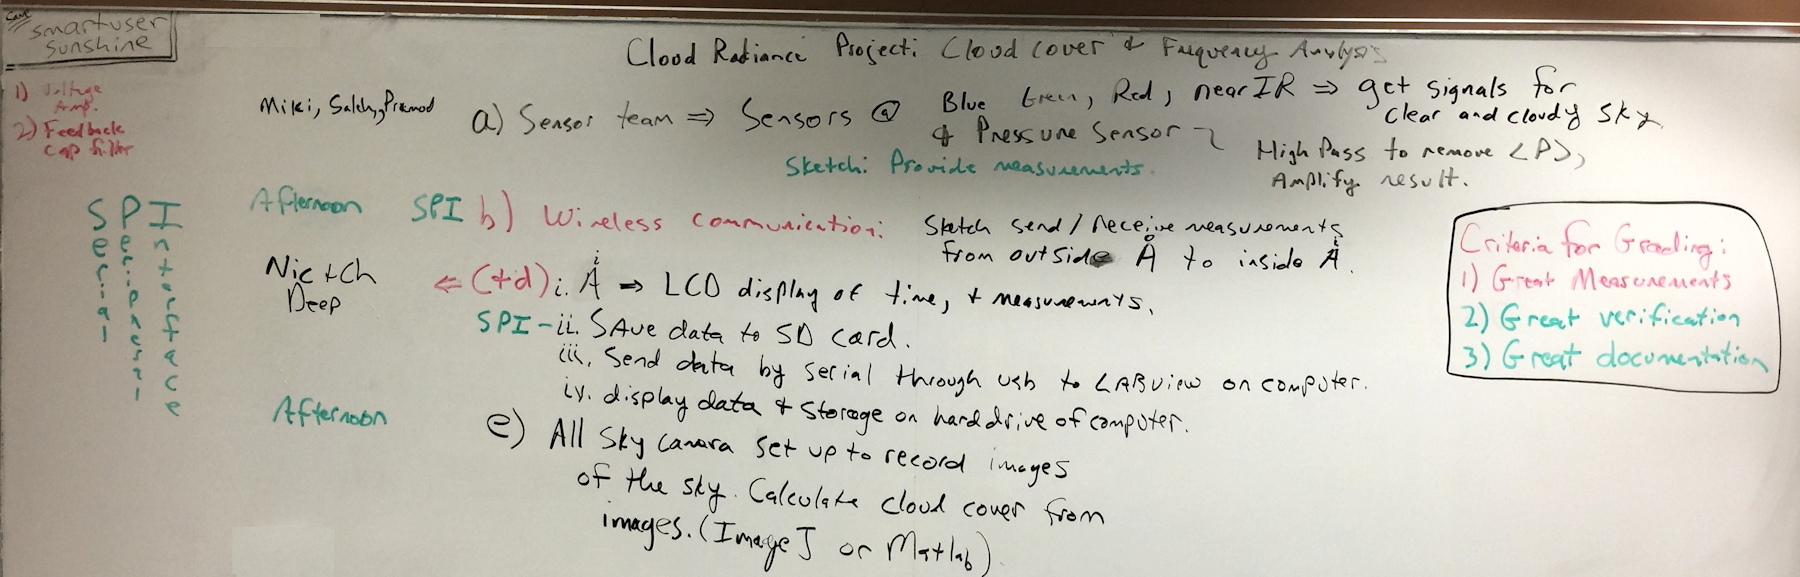 Save
smartuser
sunshine
Cloud Radiance Project: Cloud cover & Frequency Analysis
1) Voltage
Amp.
2) Feedback
cap filter
Miki, Salchy, Pramod
a) Sensor team ⇒ Sensors @ Blue Green, Red, near IR ⇒ get signals for
clear and cloudy sky
& Pressure Sensor
High Pass to remove <P>,
Amplify result.
Sketch: Provide measurements.
SPI
Serial
Peripheral
Interface
Afternoon
SPI b) Wireless communication: Sketch send / receive measurements
from outside Å to inside Å.
Nic + Ch
Deep
⇐ (+d) i. Å ⇒ LCD display of time, + measurements.
SPI - ii. Save data to SD card.
iii. Send data by serial through usb to LABVIEW on computer.
iv. display data & storage on hard drive of computer.
Afternoon
e) All Sky camara set up to record images
of the sky. Calculate cloud cover from
images. (ImageJ or Matlab)
Criteria for Grading:
1) Great Measurements
2) Great verification
3) Great documentation